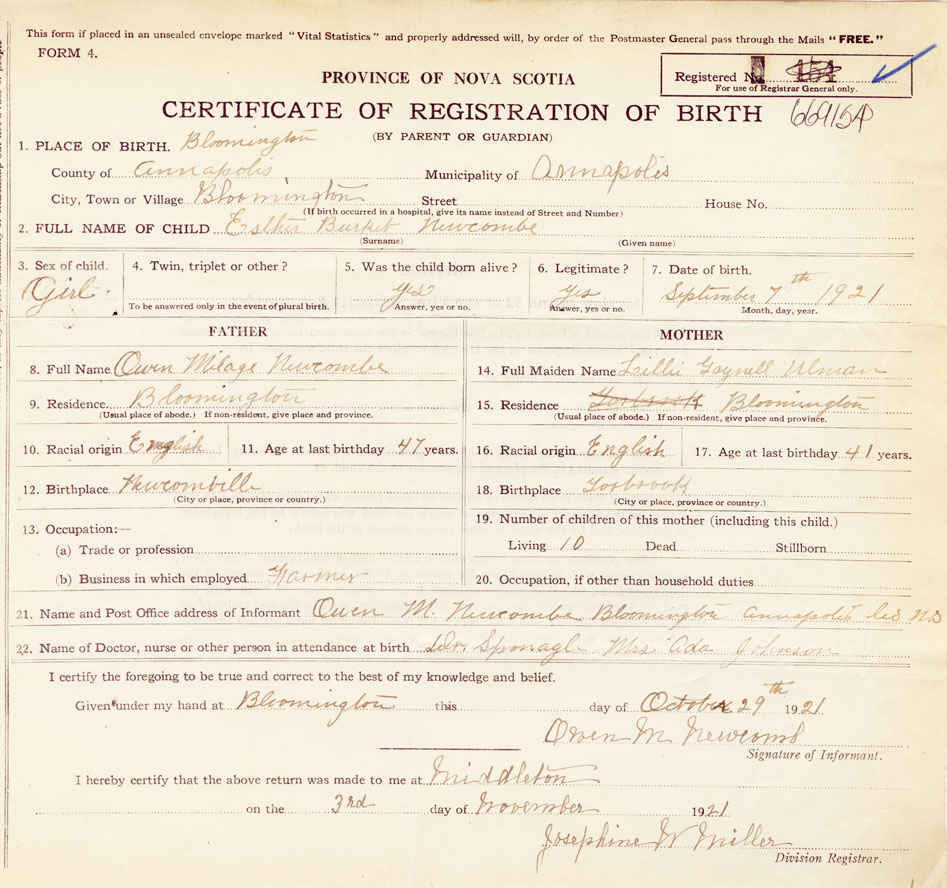 This form if placed in an unsealed envelope marked "Vital Statistics" and properly addressed will, by order of the Postmaster General pass through the Mails "FREE."
FORM 4.
Registered No. 151
For use of Registrar General only.
PROVINCE OF NOVA SCOTIA
CERTIFICATE OF REGISTRATION OF BIRTH
(BY PARENT OR GUARDIAN)
1. PLACE OF BIRTH. Bloomington
County of Annapolis, Municipality of Annapolis
City, Town or Village Bloomington Street House No.
(If birth occurred in a hospital, give its name instead of Street and Number)
2. FULL NAME OF CHILD Esther Newcombe
(Surname) (Given name)
3. Sex of child. 4. Twin, triplet or other? 5. Was the child born alive? 6. Legitimate? 7. Date of birth.
Girl. yes yes September 7th 1921
To be answered only in the event of plural birth. Answer, yes or no. Answer, yes or no. Month, day, year.
FATHER MOTHER
8. Full Name Owen Milage Newcombe 14. Full Maiden Name Lillie Ulman
9. Residence Bloomington 15. Residence Bloomington
(Usual place of abode.) If non-resident, give place and province. (Usual place of abode.) If non-resident, give place and province.
10. Racial origin English 11. Age at last birthday 47 years. 16. Racial origin English 17. Age at last birthday 41 years.
12. Birthplace Newcombille 18. Birthplace Torbrook
(City or place, province or country.) (City or place, province or country.)
13. Occupation:— 19. Number of children of this mother (including this child.)
(a) Trade or profession Living 10 Dead Stillborn
(b) Business in which employed Farmer 20. Occupation, if other than household duties
21. Name and Post Office address of Informant Owen M. Newcombe Bloomington Annapolis Co NS
22. Name of Doctor, nurse or other person in attendance at birth Dr. Sponagle Mrs Ada Johnson
I certify the foregoing to be true and correct to the best of my knowledge and belief.
Given under my hand at Bloomington this day of October 29th 1921
Owen M Newcomb
Signature of Informant.
I hereby certify that the above return was made to me at Middleton
on the 3rd day of November 1921
Josephine W Miller
Division Registrar.